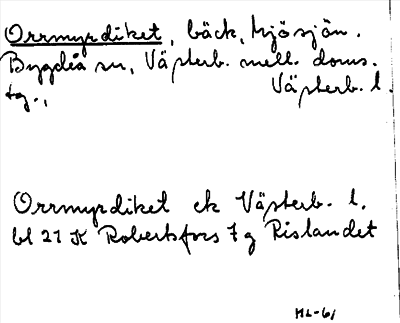 Orrmyrdiket, bäck, Mjösjön.
Bygdeå sn, Västerb. mell. doms.
tg., Västerb. l.
Orrmyrdiket ek Västerb. l.
bl 21 K Robertsfors 7 g Rislandet
ML-61